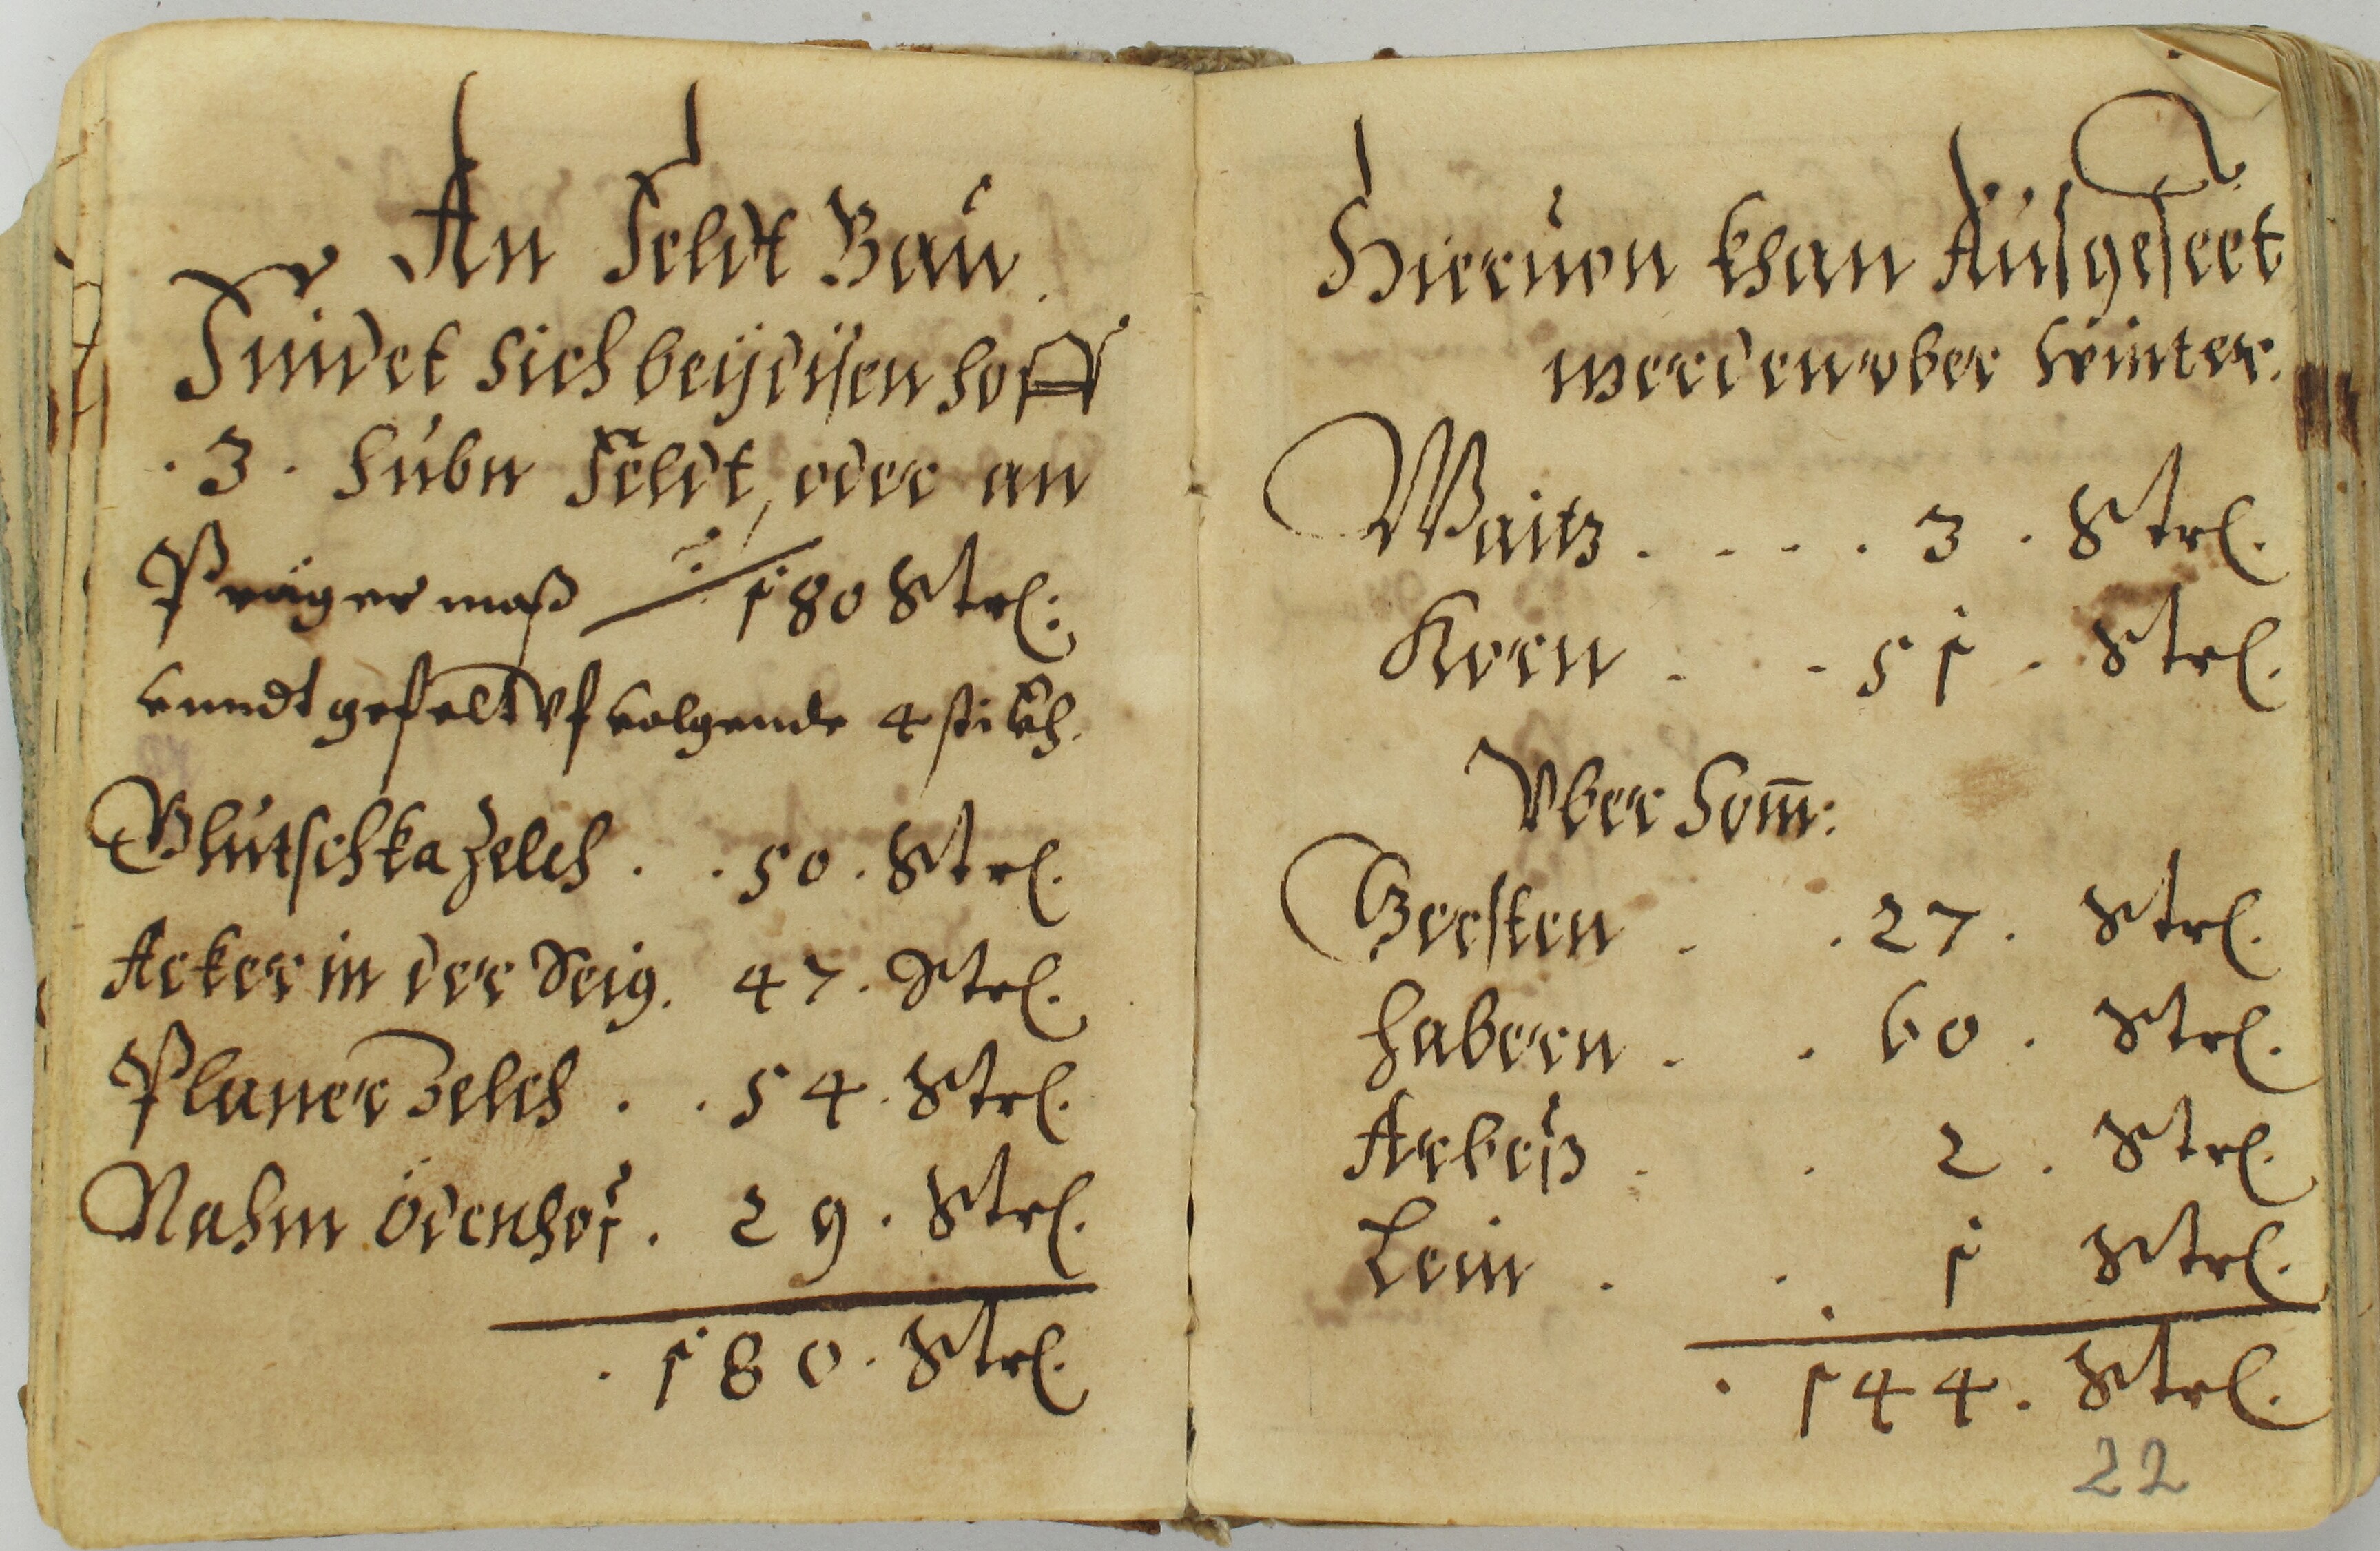 An Feldt Bau
Findet sich beÿ disen hoff
. 3 . hubn Feldt, oder an
Prager maß 180 Strl:
vnndt gefelt vf volgende 4 stückh.
Blutschka Zelch . . 50 . Strl.
Acker in der Seig. 47 . Strl.
Planer Zelch . . 54 . Strl.
Nahm Ödenhof . 29 . Strl.
. 180 . Strl.
Hieruon khan Ausgeseet
werden vber Winter.
Waitz . . . . 3 . Strl.
Korn . . 51 . Strl.
Vber Som̄:
Gersten . . 27 . Strl.
Habern . . 60 . Strl.
Arbeiß . . 2 . Strl.
Lein . . 1 Strl.
. 144 . Strl.
22